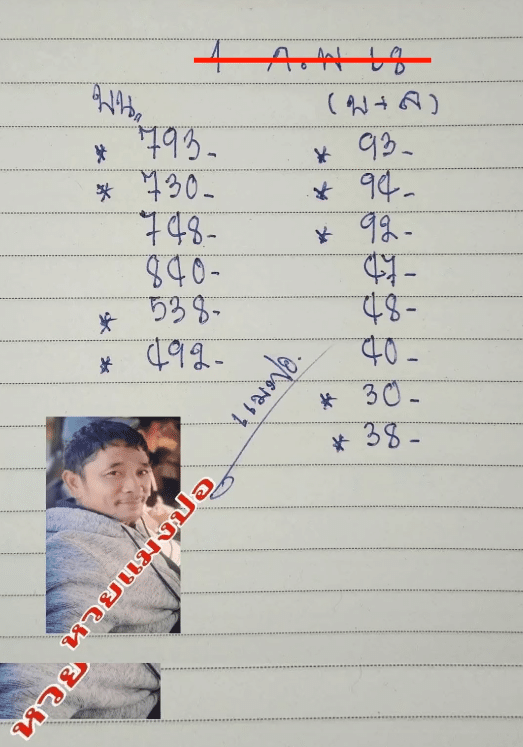 1 ก.พ 68
บน. (บ+ล)
* 793- * 93-
* 730- * 94-
748- * 92-
840- 47-
* 538- 48-
* 492- 40-
* 30-
* 38-
แมงปอ.
หวยแมงปอ
หวย